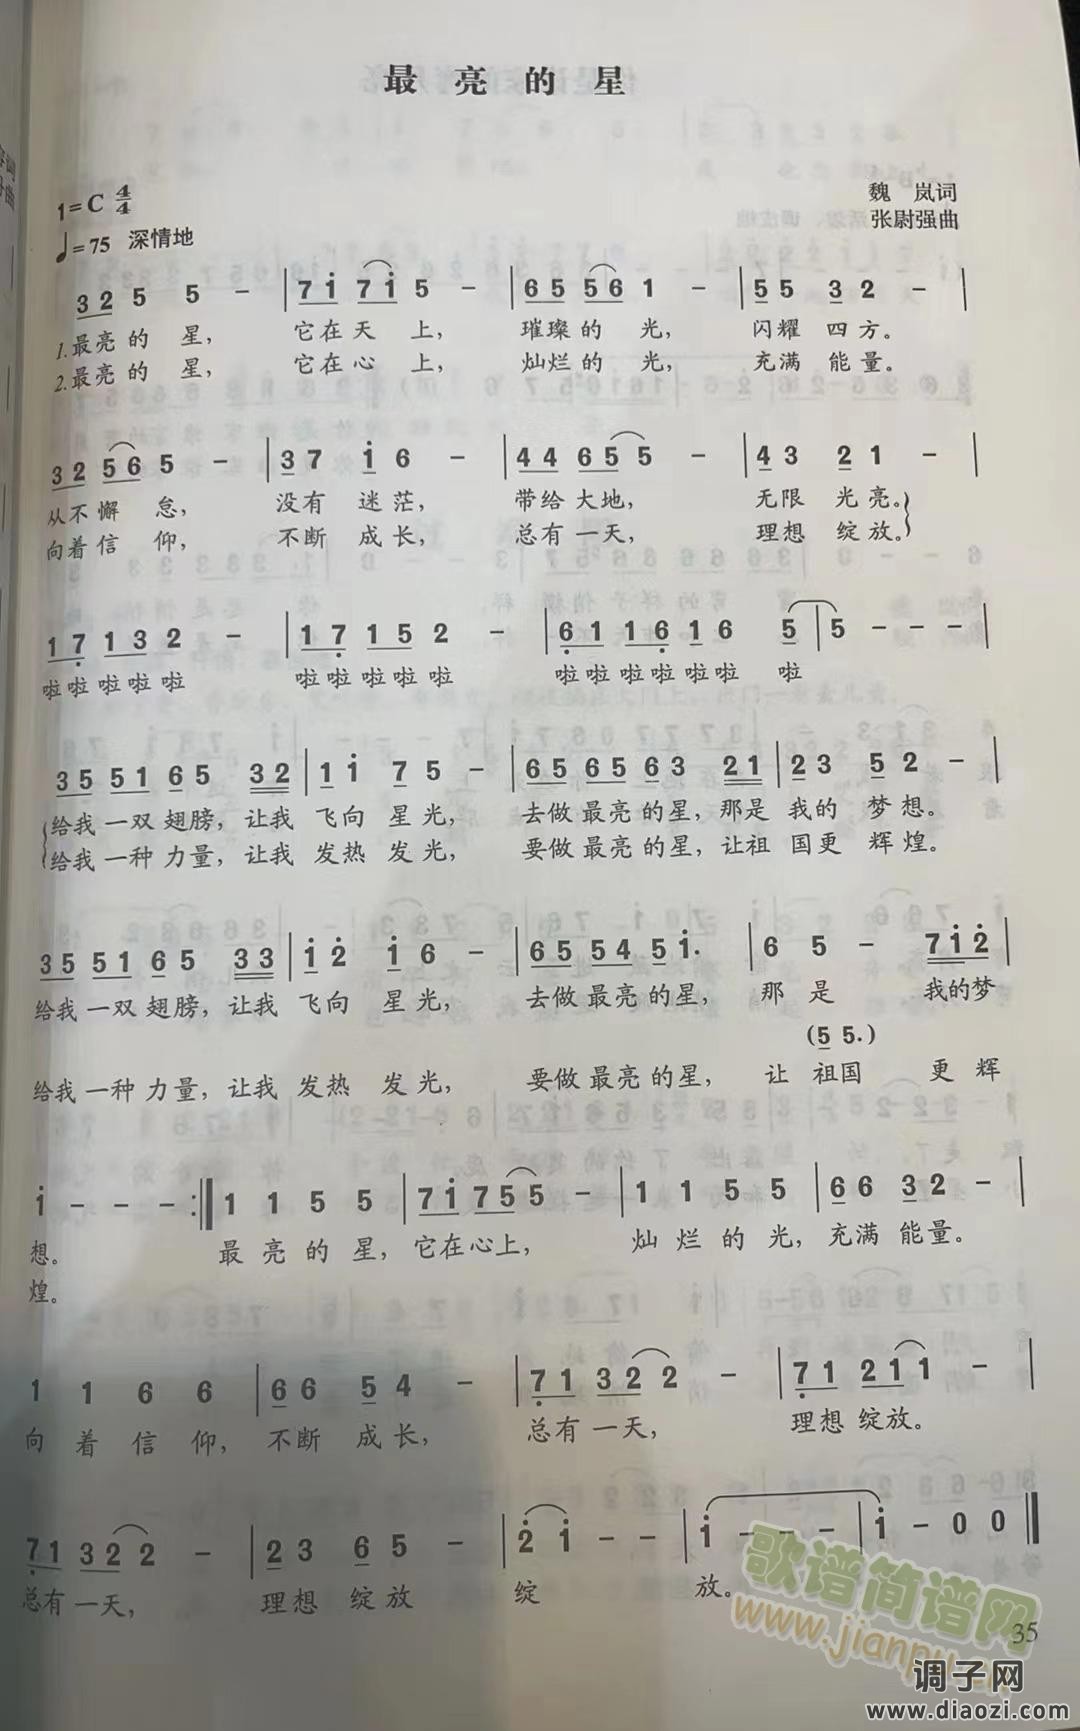 最亮的星
1=C 4/4
魏 岚词
♩=75 深情地
张尉强曲
3 2 5 5 - | 7 i 7 i 5 - | 6 5 5 6 1 - | 5 5 3 2 - |
1.最亮的 星, 它在天 上, 璀璨的 光, 闪耀 四方。
2.最亮的 星, 它在心 上, 灿烂的 光, 充满 能量。
3 2 5 6 5 - | 3 7 i 6 - | 4 4 6 5 5 - | 4 3 2 1 - |
从不懈 怠, 没有 迷茫, 带给大地, 无限 光亮。
向着信 仰, 不断 成长, 总有一天, 理想 绽放。
1 7 1 3 2 - | 1 7 1 5 2 - | 6 1 1 6 1 6 5 | 5 - - - |
啦啦啦啦啦 啦啦啦啦啦 啦啦啦啦啦啦 啦
3 5 5 1 6 5 3 2 | 1 i 7 5 - | 6 5 6 5 6 3 2 1 | 2 3 5 2 - |
给我一双翅膀, 让我 飞向 星光, 去做最亮的星, 那是 我的 梦想。
给我一种力量, 让我 发热 发光, 要做最亮的星, 让祖 国更 辉煌。
3 5 5 1 6 5 3 3 | i 2 i 6 - | 6 5 5 4 5 i. | 6 5 - 7 i 2 |
给我一双翅膀, 让我 飞向 星光, 去做最亮的星, 那 是 我的梦
(5 5.)
给我一种力量, 让我 发热 发光, 要做最亮的星, 让 祖国 更 辉
i - - - :‖ 1 1 5 5 | 7 i 7 5 5 - | 1 1 5 5 | 6 6 3 2 - |
想。 最 亮 的 星, 它在心上, 灿 烂 的 光, 充满 能量。
煌。
1 1 6 6 | 6 6 5 4 - | 7 1 3 2 2 - | 7 1 2 1 1 - |
向 着 信 仰, 不断 成长, 总有一天, 理想绽放。
7 1 3 2 2 - | 2 3 6 5 - | 2 i - - | i - - - | i - 0 0 ‖
总有一天, 理想 绽放 绽 放。
歌谱简谱网
www.jianpu.cn
35
调子网
www.diaozi.com